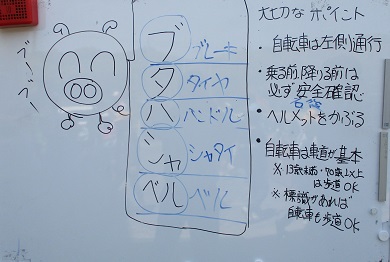 ブーブー
ブ ブレーキ
タ タイヤ
ハ ハンドル
シャ シャタイ
ベル ベル
大切なポイント
・自転車は左側通行
・乗る前、降りる前は
必ず安全確認
・ヘルメットをかぶる
・自転車は車道が基本
※13歳未満・70歳以上
は歩道OK
※標識があれば
自転車も歩道OK